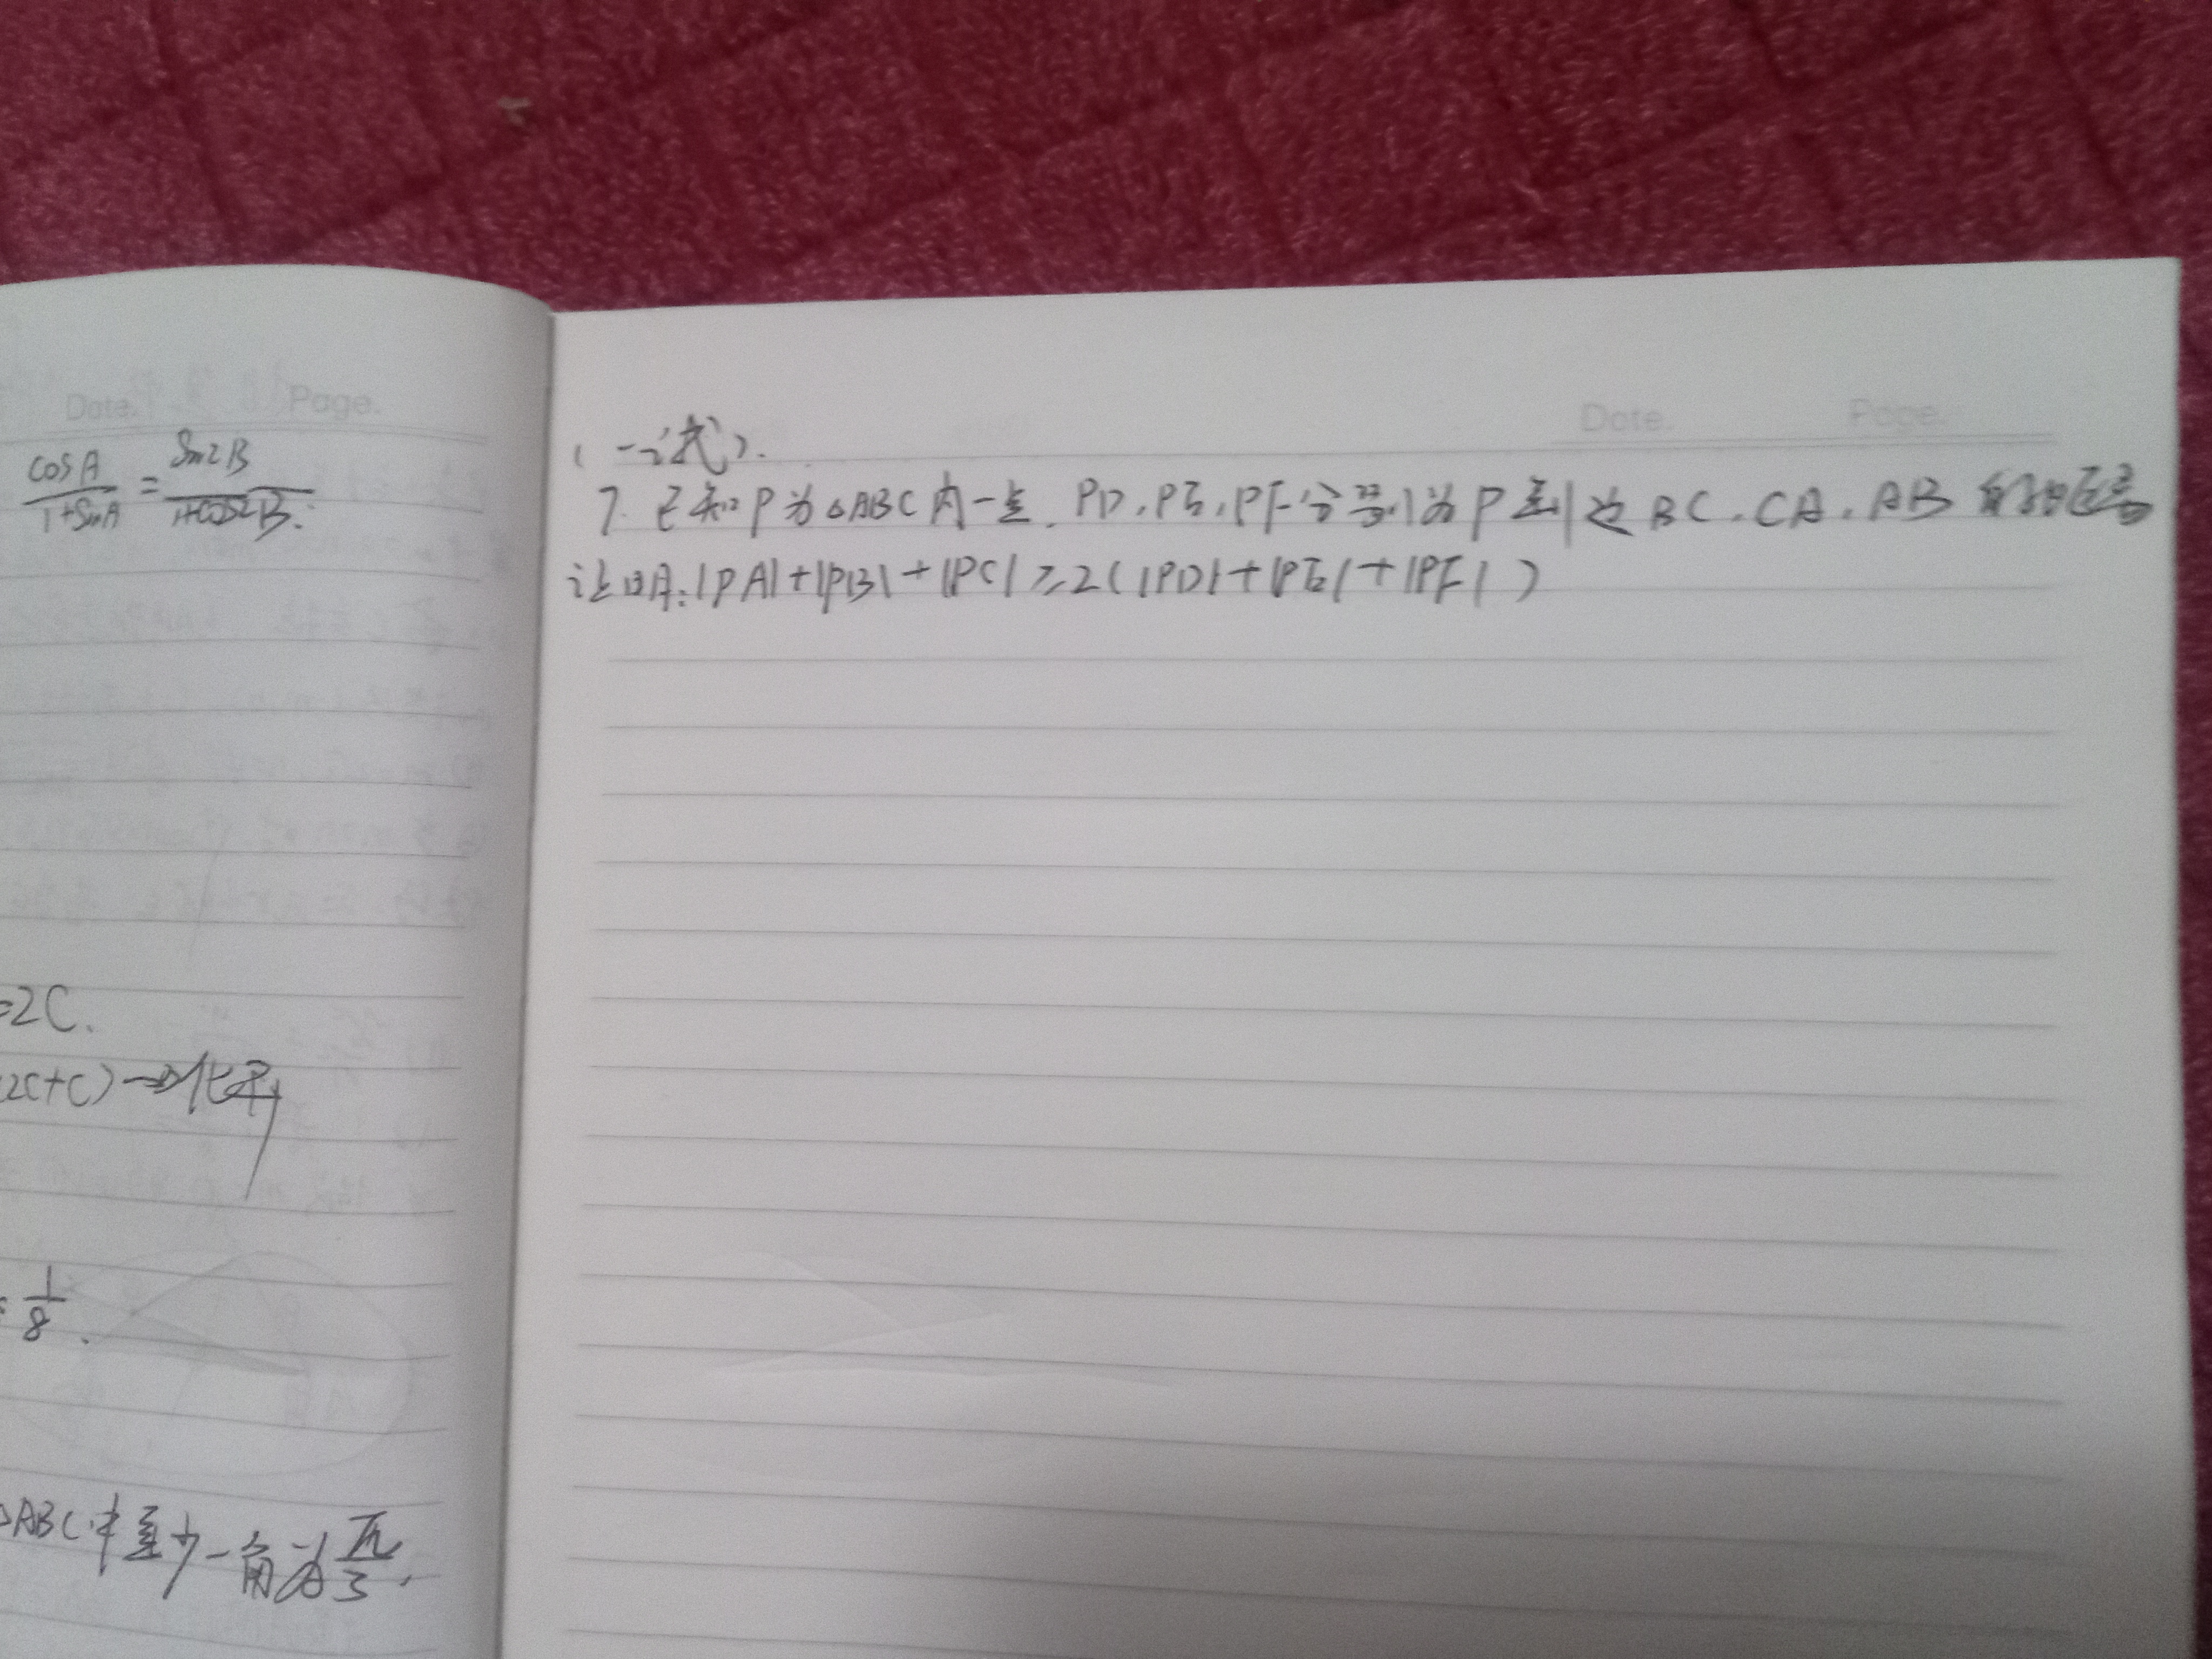 Date. Page.
cosA/1+sinA = sin2B/1+cos2B.
=2C.
2C+C)→化开
=1/8.
△ABC中至少一角为π/3.
Date. Page.
(一试).
7. 已知P为△ABC内一点.PD,PE,PF分别为P到边BC.CA.AB的距离
证明:|PA|+|PB|+|PC|≥2(|PD|+|PE|+|PF|)